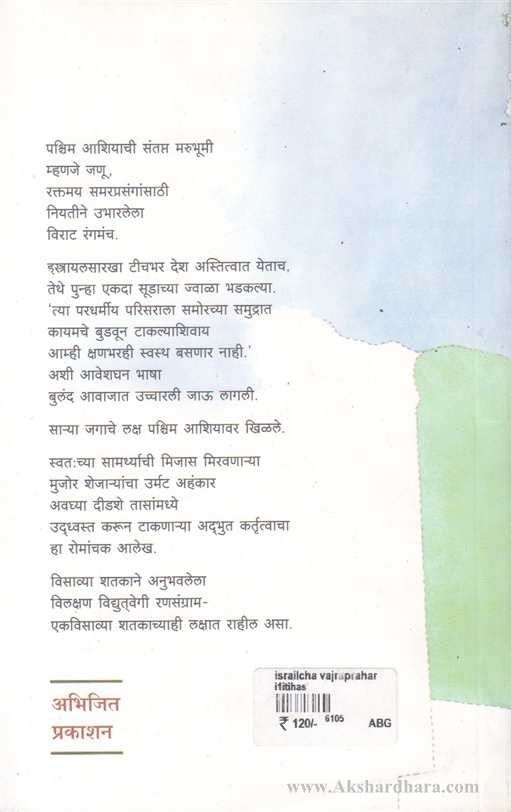 पश्चिम आशियाची संतप्त मरुभूमी
म्हणजे जणू,
रक्तमय समरप्रसंगांसाठी
नियतीने उभारलेला
विराट रंगमंच.
इस्रायलसारखा टीचभर देश अस्तित्वात येताच,
तेथे पुन्हा एकदा सूडाच्या ज्वाळा भडकल्या.
'त्या परधर्मीय परिसराला समोरच्या समुद्रात
कायमचे बुडवून टाकल्याशिवाय
आम्ही क्षणभरही स्वस्थ बसणार नाही.'
अशी आवेशघन भाषा
बुलंद आवाजात उच्चारली जाऊ लागली.
साऱ्या जगाचे लक्ष पश्चिम आशियावर खिळले.
स्वतःच्या सामर्थ्याची मिजास मिरवणाऱ्या
मुजोर शेजाऱ्यांचा उर्मट अहंकार
अवघ्या दीडशे तासांमध्ये
उद्ध्वस्त करून टाकणाऱ्या अद्‌भुत कर्तृत्वाचा
हा रोमांचक आलेख.
विसाव्या शतकाने अनुभवलेला
विलक्षण विद्युत्‌वेगी रणसंग्राम-
एकविसाव्या शतकाच्याही लक्षात राहील असा.
अभिजित
प्रकाशन
israilcha vajraprahar
itihas
₹ 120/- 6105 ABG
www.Akshardhara.com